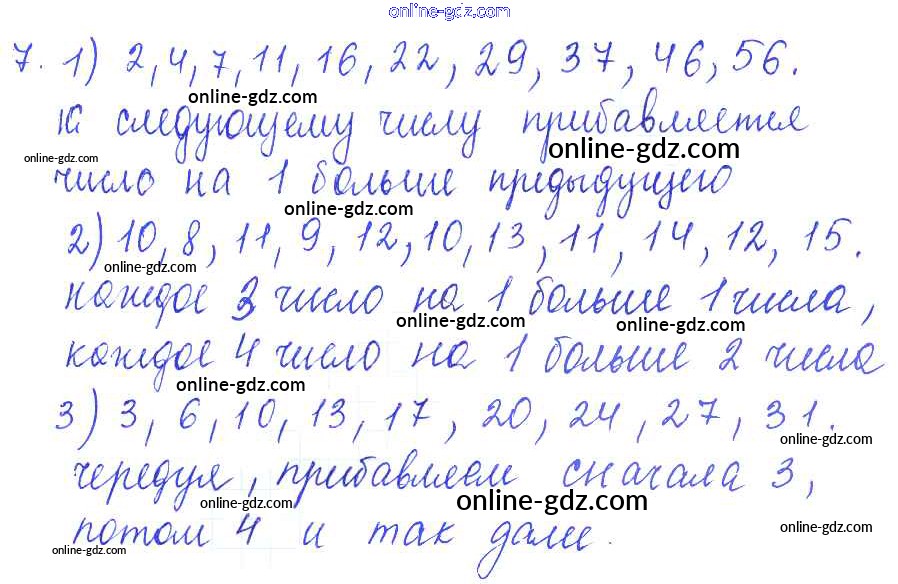 online-gdz.com
7. 1) 2, 4, 7, 11, 16, 22, 29, 37, 46, 56.
online-gdz.com
К следующему числу прибавляется
online-gdz.com
online-gdz.com
число на 1 больше предыдущего
online-gdz.com
2) 10, 8, 11, 9, 12, 10, 13, 11, 14, 12, 15.
online-gdz.com
каждое 3 число на 1 больше 1 числа,
online-gdz.com
online-gdz.com
каждое 4 число на 1 больше 2 числа
online-gdz.com
3) 3, 6, 10, 13, 17, 20, 24, 27, 31.
online-gdz.com
чередуя, прибавляем сначала 3,
online-gdz.com
online-gdz.com
потом 4 и так далее.
online-gdz.com
online-gdz.com